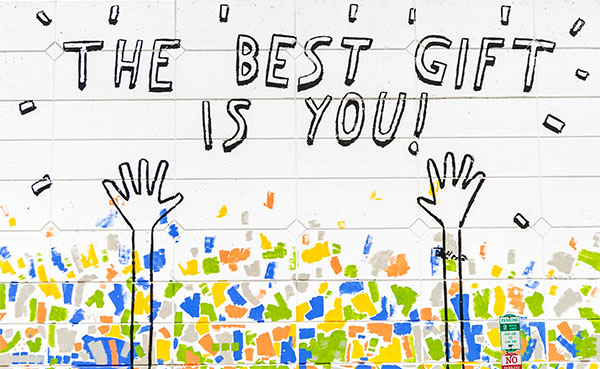 THE BEST GIFT
IS YOU!
PARKING
2
NO